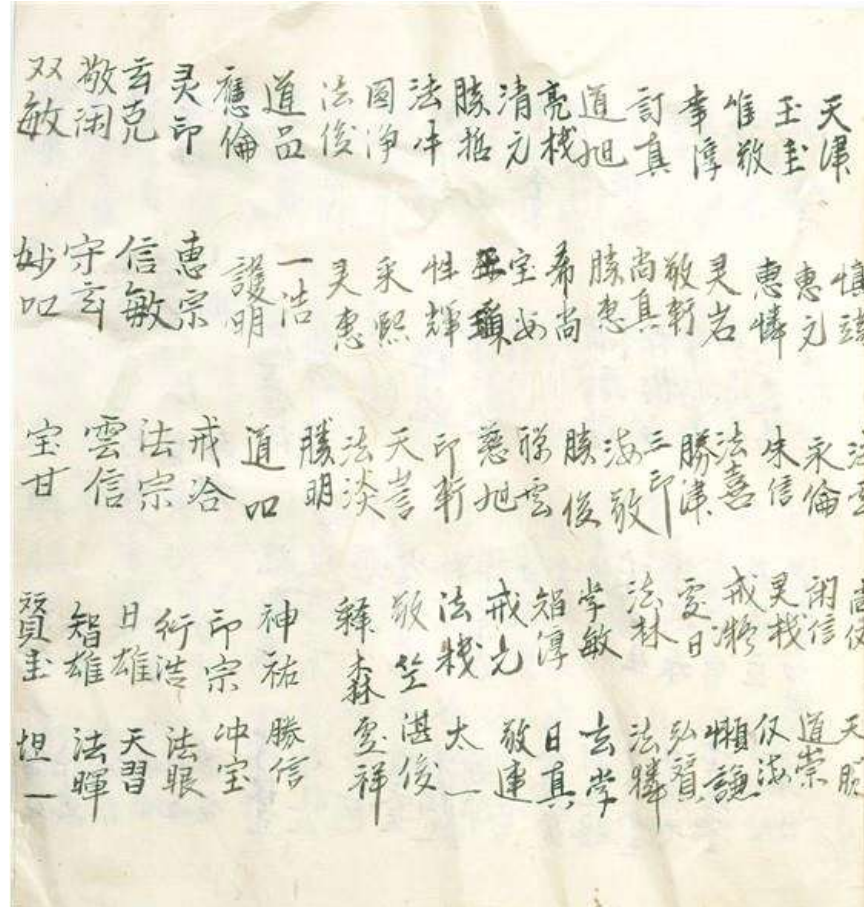 天津 玉圭 唯敬 幸淳 訂真 道旭 亮栈 清元 勝哲 法牛 國淨 法俊 道品 應倫 灵印 玄克 敬闲 双敏
惠元 惠憐 灵岩 敬軒 尚真 勝惠 希尚 宝 性輝 采熙 灵惠 一浩 護明 惠宗 信敏 守玄 妙吅
永倫 朱信 法喜 勝津 三印 海敬 勝俊 禅雲 慈旭 印軒 天誉 法淡 勝明 道吅 戒冾 法宗 雲信 宝甘
闲信 灵栈 戒凝 雯日 法林 学敏 智淳 戒元 法栈 敬笠 釋森 神祐 印宗 行浩 日雄 智雄 賢圭
道崇 仅海 懶謙 弘賢 法麟 玄学 日真 敬連 太一 湛俊 雯祥 勝信 冲宝 法眼 天習 法暉 坦一